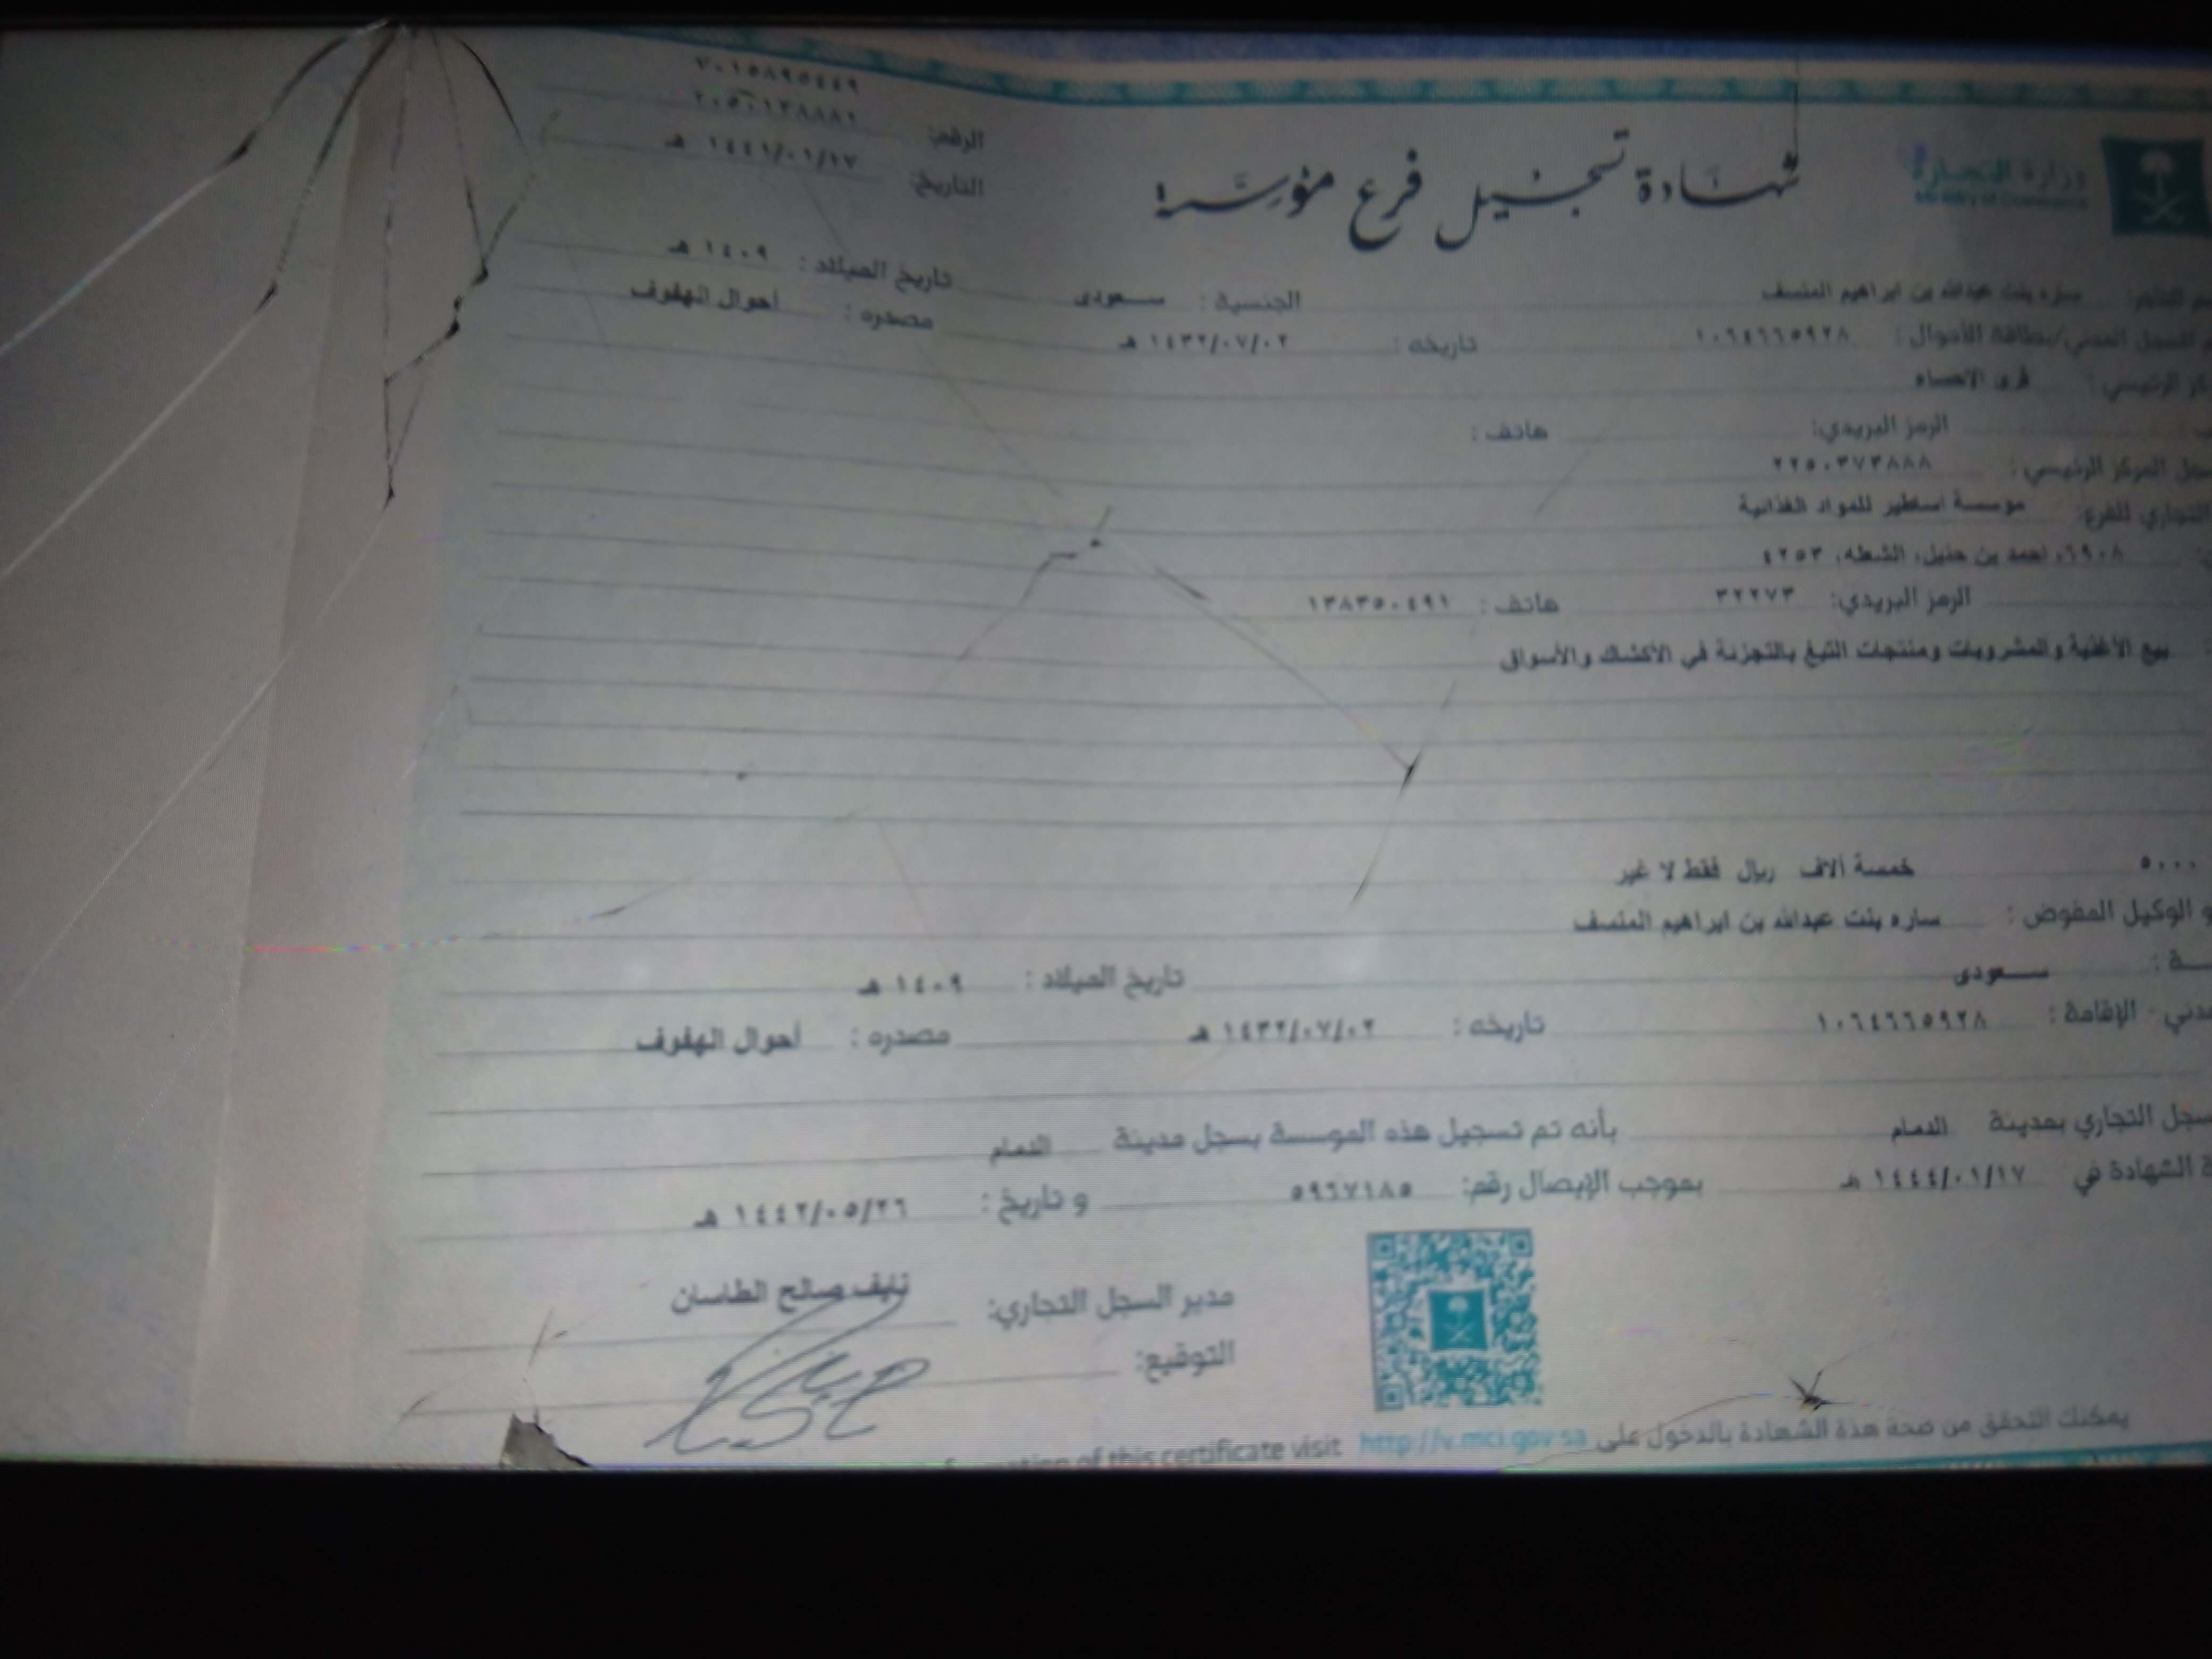 ٧٠١٥٨٩٥٤٤٩
وزارة التجارة
Ministry of Commerce
شهادة تسجيل فرع مؤسسة
الرقم: ٢٠٥٠١٣٨٨٨٢
التاريخ: ١٤٤١/٠١/١٧ هـ
ساره بنت عبدالله بن ابراهيم المنسف الجنسية : سعودى تاريخ الميلاد : ١٤٠٩ هـ
السجل المدني/بطاقة الأحوال : ١٠٦٤٦٦٥٩٢٨ تاريخه : ١٤٣٢/٠٧/٠٢ هـ مصدره : أحوال الهفوف
الرئيسي : قرى الاحساء
الرمز البريدي: هاتف :
المركز الرئيسي : ٢٢٥٠٣٧٣٨٨٨
التجاري للفرع: موسسة اساطير للمواد الغذائية
٦٩٠٨، احمد بن حنبل، الشعله، ٤٢٥٣
الرمز البريدي: ٣٢٢٧٣ هاتف : ١٣٨٣٥٠٤٩١
بيع الأغذية والمشروبات ومنتجات التبغ بالتجزئة في الأكشاك والأسواق
٥٠٠٠ خمسة آلاف ريال فقط لا غير
و الوكيل المفوض : ساره بنت عبدالله بن ابراهيم المنسف
سعودى تاريخ الميلاد : ١٤٠٩ هـ
الإقامة : ١٠٦٤٦٦٥٩٢٨ تاريخه : ١٤٣٢/٠٧/٠٢ هـ مصدره : أحوال الهفوف
التجاري بمدينة الدمام بأنه تم تسجيل هذه الموسسة بسجل مدينة الدمام
الشهادة في ١٤٤٤/٠١/١٧ هـ بموجب الإيصال رقم: ٥٩٦٧١٨٥ و تاريخ : ١٤٤٢/٠٥/٢٦ هـ
مدير السجل التجاري: نايف صالح الطاسان
التوقيع:
يمكنك التحقق من صحة هذة الشهادة بالدخول على http://v.mci.gov.sa of this certificate visit